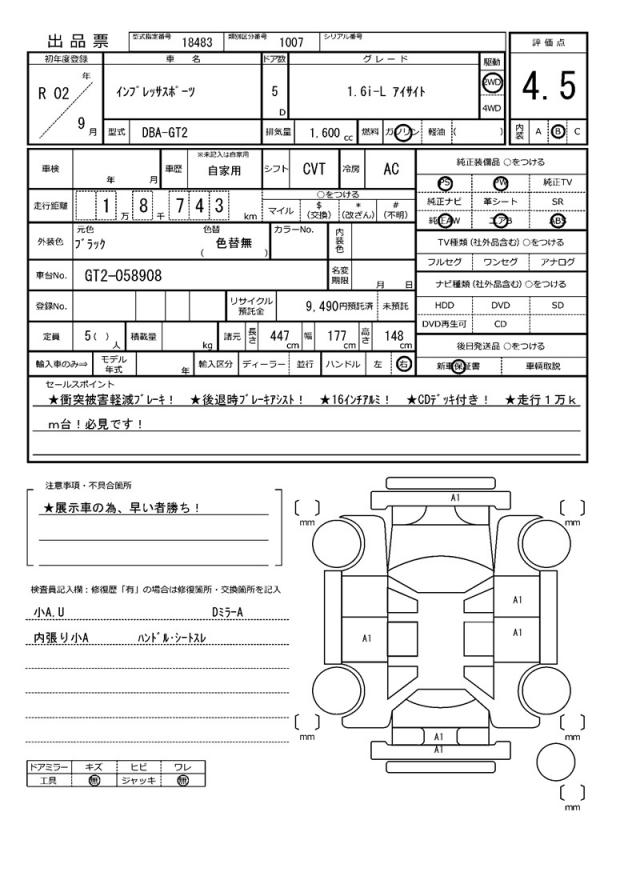 出品票
型式指定番号 18483 類別区分番号 1007 シリアル番号
評価点
初年度登録 車名 ドア数 グレード 駆動
R 02 年 9 月
インプレッサスポーツ 5 D 1.6i-L アイサイト 2WD 4WD
4.5
型式 DBA-GT2 排気量 1,600 cc 燃料 ガソリン 軽油 ( ) 内装 A B C
車検 年 月 車歴 ※未記入は自家用 自家用 シフト CVT 冷房 AC
純正装備品 ○をつける
PS PW 純正TV
純正ナビ 革シート SR
純正AW エアB ABS
走行距離 1 万 8 千 7 4 3 km ○をつける
マイル $(交換) *(改ざん) #(不明)
外装色 元色 ブラック 色替 色替無 ( ) カラーNo. 内装色
TV種類(社外品含む)○をつける
フルセグ ワンセグ アナログ
車台No. GT2-058908 名変期限 月 日
ナビ種類(社外品含む)○をつける
HDD DVD SD
DVD再生可 CD
登録No. リサイクル預託金 9,490円預託済 未預託
定員 5( ) 人 積載量 kg 諸元 長さ 447 cm 幅 177 cm 高さ 148 cm
後日発送品 ○をつける
新車保証書 車輌取説
輸入車のみ⇒ モデル年式 年 輸入区分 ディーラー 並行 ハンドル 左 右
セールスポイント
★衝突被害軽減ブレーキ! ★後退時ブレーキアシスト! ★16インチアルミ! ★CDデッキ付き! ★走行1万k
m台!必見です!
注意事項・不具合箇所
★展示車の為、早い者勝ち!
検査員記入欄:修復歴「有」の場合は修復箇所・交換箇所を記入
小A,U DミラーA
内張り小A ハンドル・シートスレ
ドアミラー キズ ヒビ ワレ
工具 無 ジャッキ 無
A1
mm
mm
A1
A1
A1
A1
A1
mm
mm
mm